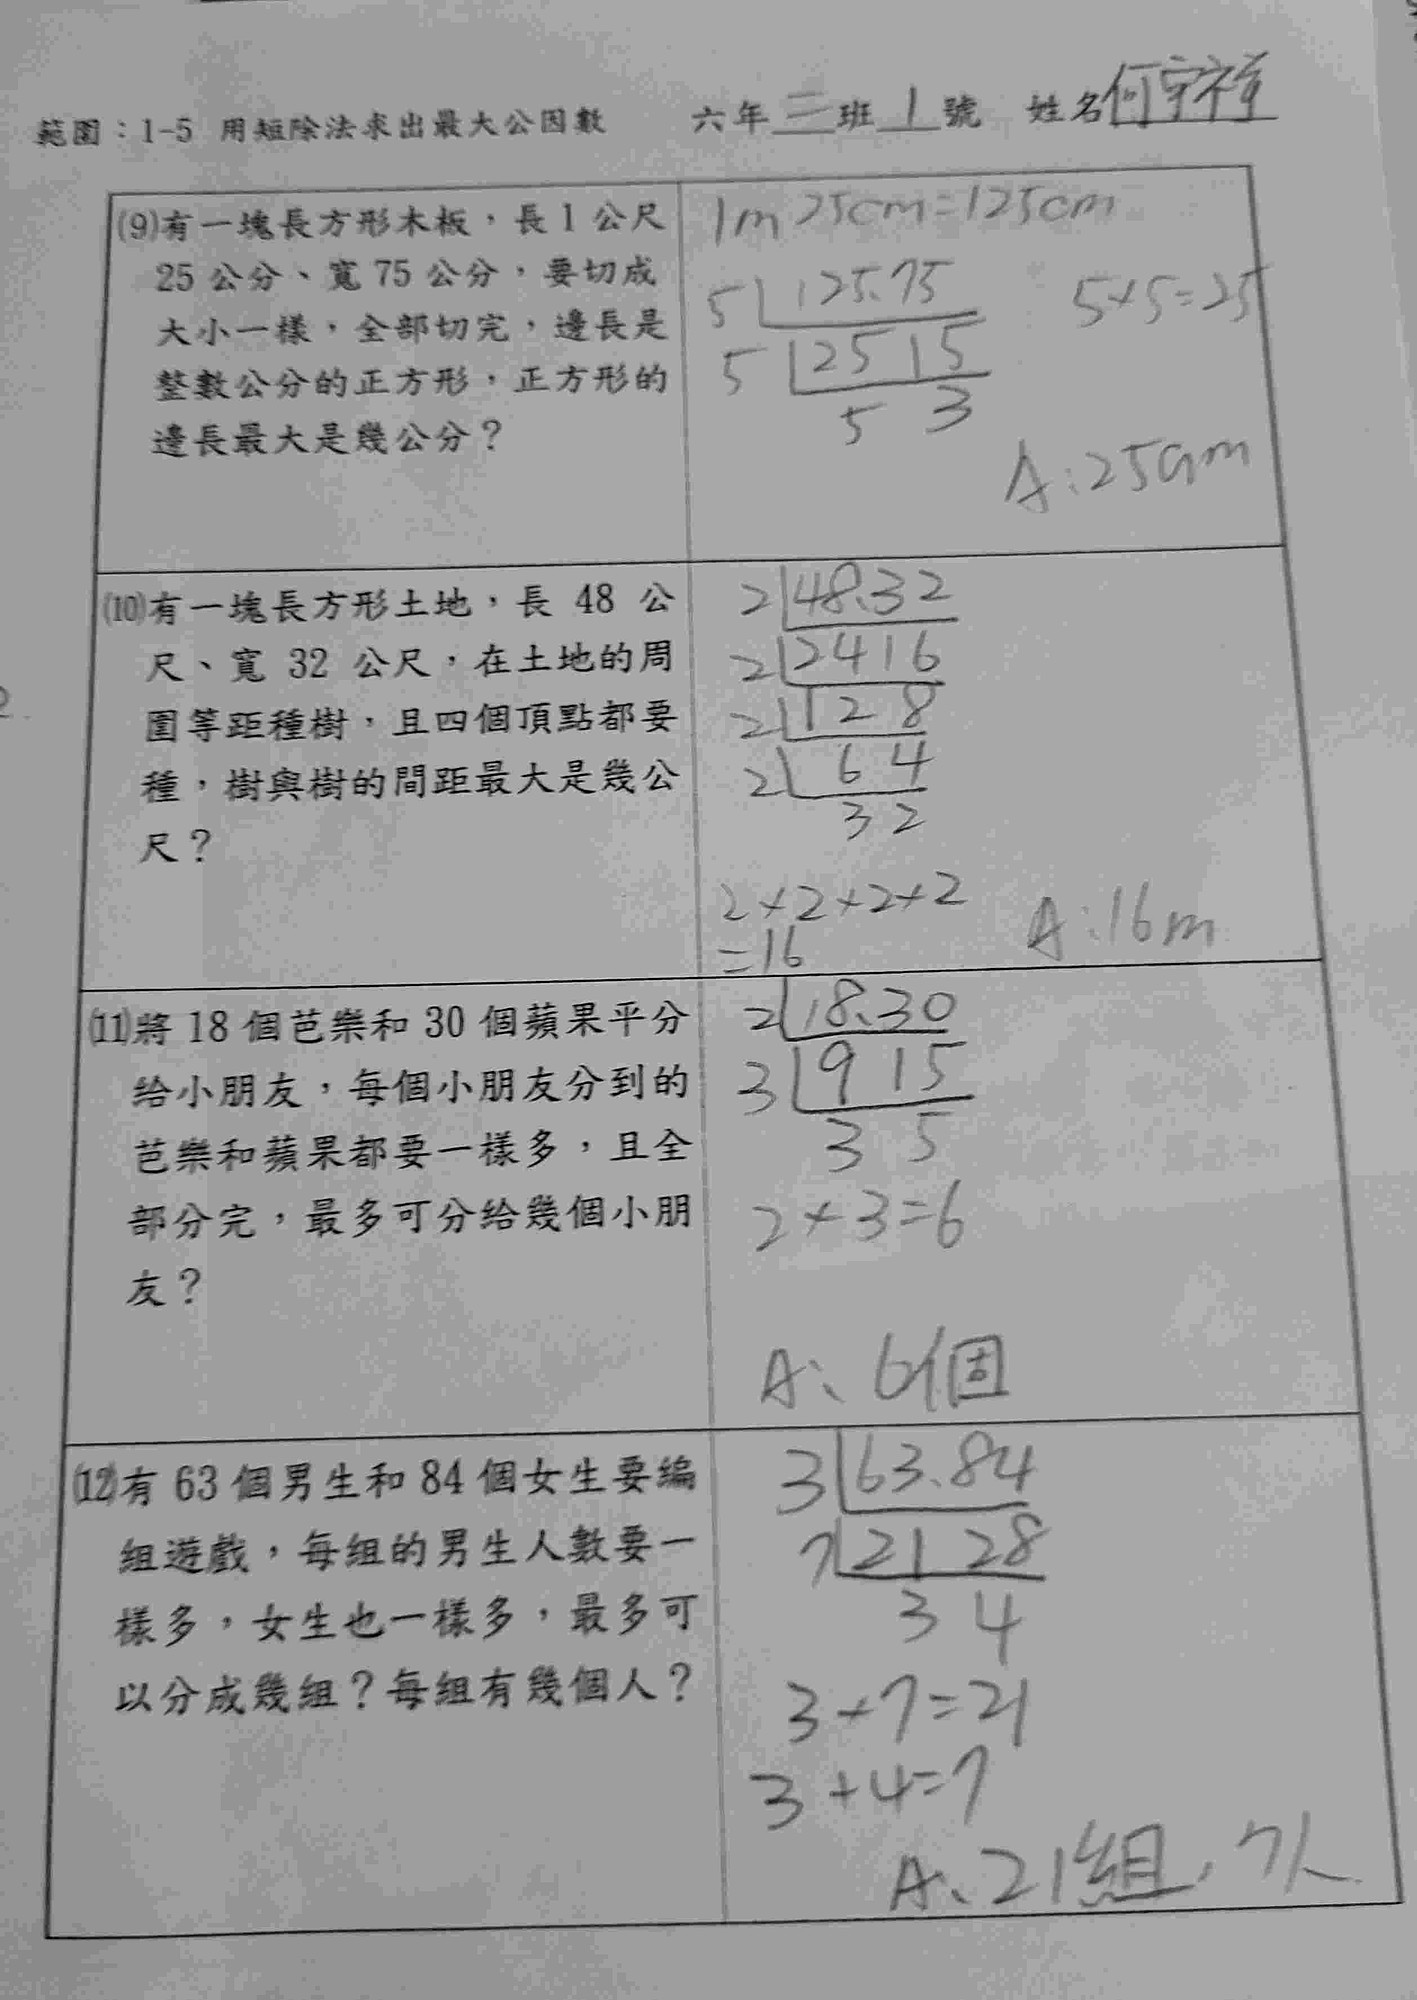 範圍：1-5 用短除法求出最大公因數 六年三班1號 姓名何宇祥
(9)有一塊長方形木板，長1公尺
25公分、寬75公分，要切成
大小一樣，全部切完，邊長是
整數公分的正方形，正方形的
邊長最大是幾公分？
1m25cm=125cm
5 125、75
5×5=25
5 25 15
5 3
A:25cm
(10)有一塊長方形土地，長 48 公
尺、寬 32 公尺，在土地的周
圍等距種樹，且四個頂點都要
種，樹與樹的間距最大是幾公
尺？
2 48、32
2 24 16
2 12 8
2 6 4
3 2
2×2×2×2
=16
A:16m
(11)將18個芭樂和30個蘋果平分
給小朋友，每個小朋友分到的
芭樂和蘋果都要一樣多，且全
部分完，最多可分給幾個小朋
友？
2 18、30
3 9 15
3 5
2×3=6
A、6個
(12)有63個男生和84個女生要編
組遊戲，每組的男生人數要一
樣多，女生也一樣多，最多可
以分成幾組？每組有幾個人？
3 63、84
7 21 28
3 4
3×7=21
3+4=7
A、21組，7人